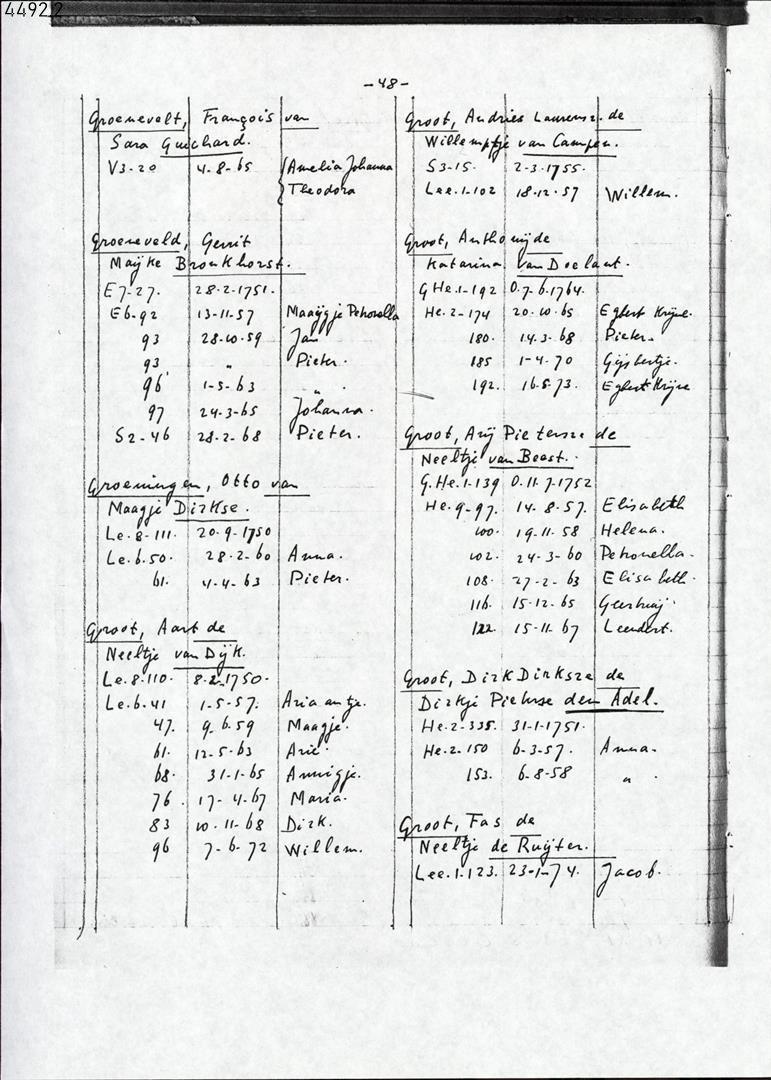 44922
-48-
Groenevelt, François van
Sara Guichard.
V3-20 4-8-65 {Amelia Johanna
Theodora
Groeneveld, Gerrit
Maijke Bronkhorst.
E7-27. 28-2-1751.
E6-92 13-11-57 Maaijgje Petronella
93 28-10-59 Jan
93 " Pieter.
96 1-5-63 " .
97 24-3-65 Johanna.
S2-46 28-2-68 Pieter.
Groeningen, Otto van
Maagje Dirkse.
Le.8-111. 20-9-1750
Le.6.50. 28-2-60 Anna.
61. 4-4-63 Pieter.
Groot, Aart de
Neeltje van Dijk.
Le.8-110. 8-2-1750.
Le.6-41 1-5-57. Ariaantje.
47. 9-6-59 Maagje.
61. 12-5-63 Arie.
68. 31-1-65 Annigje.
76. 17-4-67 Maria.
83 10-11-68 Dirk.
96 7-6-72 Willem.
Groot, Andries Laurensz. de
Willemptje van Campen.
S3-15. 2-3-1755.
Lee.1-102 18-12-57 Willem.
Groot, Anthonij de
Katarina van Doelant.
GHe.1-192 O.7-6-1764.
He.2-174 20-10-65 Egbert Krijne.
180. 14-3-68 Pieter.
185 1-4-70 Gijsbertje.
192. 16-5-73. Egbert Krijne
Groot, Arij Pietersze de
Neeltje van Beest.
G.He.1-139 O.11-7-1752
He.9-97. 14-8-57. Elisabeth
100. 19-11-58 Helena.
102. 24-3-60 Petronella.
108. 27-2-63 Elisabeth.
116. 15-12-65 Geertruij.
122 15-11-67 Leendert.
Groot, Dirk Dirksze de
Dirkje Pieterse den Adel.
He.2-335. 31-1-1751.
He.2-150 6-3-57. Anna.
153. 6-8-58 " .
Groot, Fas de
Neeltje de Ruijter.
Lee.1-123. 23-1-74. Jacob.